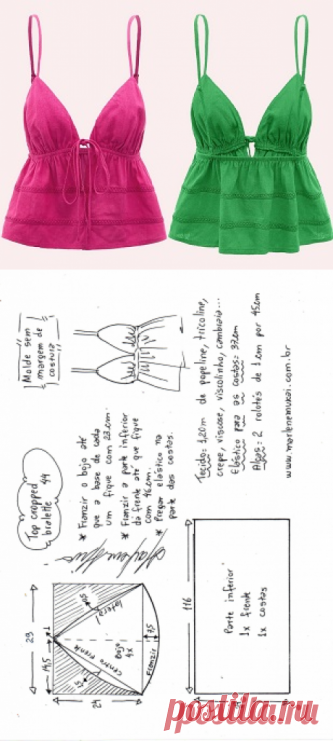 Molde sem
margem de
costura
Top cropped
bralette 44
* Franzir o bojo até
que a base de cada
um fique com 23cm.
* Franzir a parte inferior
da frente até que fique
com 46cm.
* Pregar elástico na
parte das
costas.
Tecido: 1,20m de popeline, tricoline,
crepe, viscose, viscolinho, cambraia...
Elástico para as costas: 32cm
Alças: 2 rolotês de 1cm por 45cm
www.marlenemukai.com.br
29
14,5
1
24
lateral
Centro frente
Bojo
4x
Franzir
7,5
116
Parte inferior
1x frente
1x costas
postila.ru